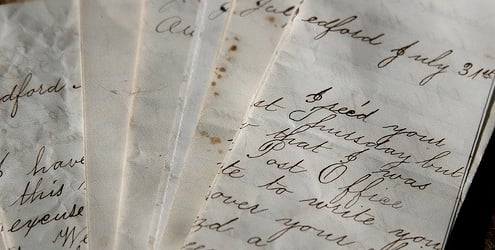 dford
have
this
excuse
We
Au
Jul
edford July 31st
I reed your
st Thursday but
that I was
Post Office
te to write you
over your
d a